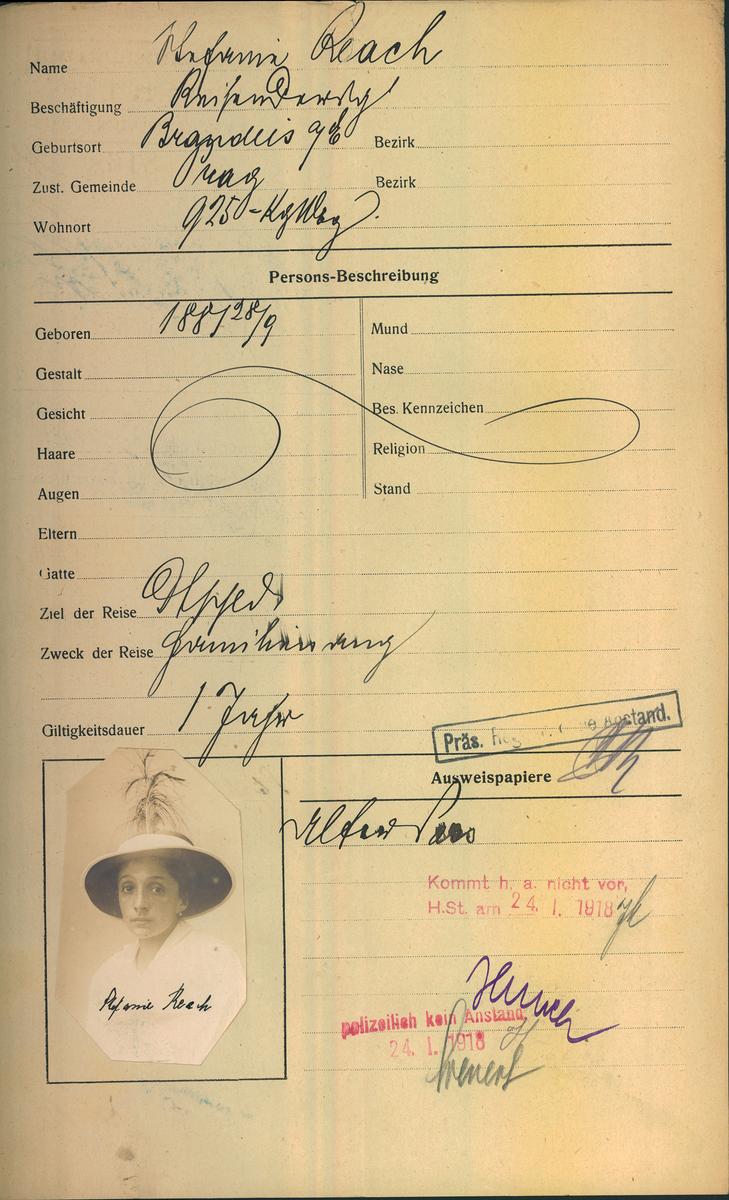 Name Stefanie Reach
Beschäftigung
Geburtsort Brandeis a/E Bezirk
Zust. Gemeinde Prag Bezirk
Wohnort 925-KglWbg
Persons-Beschreibung
Geboren 1881 28/9 Mund
Gestalt Nase
Gesicht Bes. Kennzeichen
Haare Religion
Augen Stand
Eltern
Gatte
Ziel der Reise
Zweck der Reise
Giltigkeitsdauer 1 Jahr
Präs. Reg. Anstand.
Ausweispapiere
Alter Pass
Kommt h. a. nicht vor,
H.St. am 24. I. 1918
Stefanie Reach
polizeilich kein Anstand,
24. I. 1918